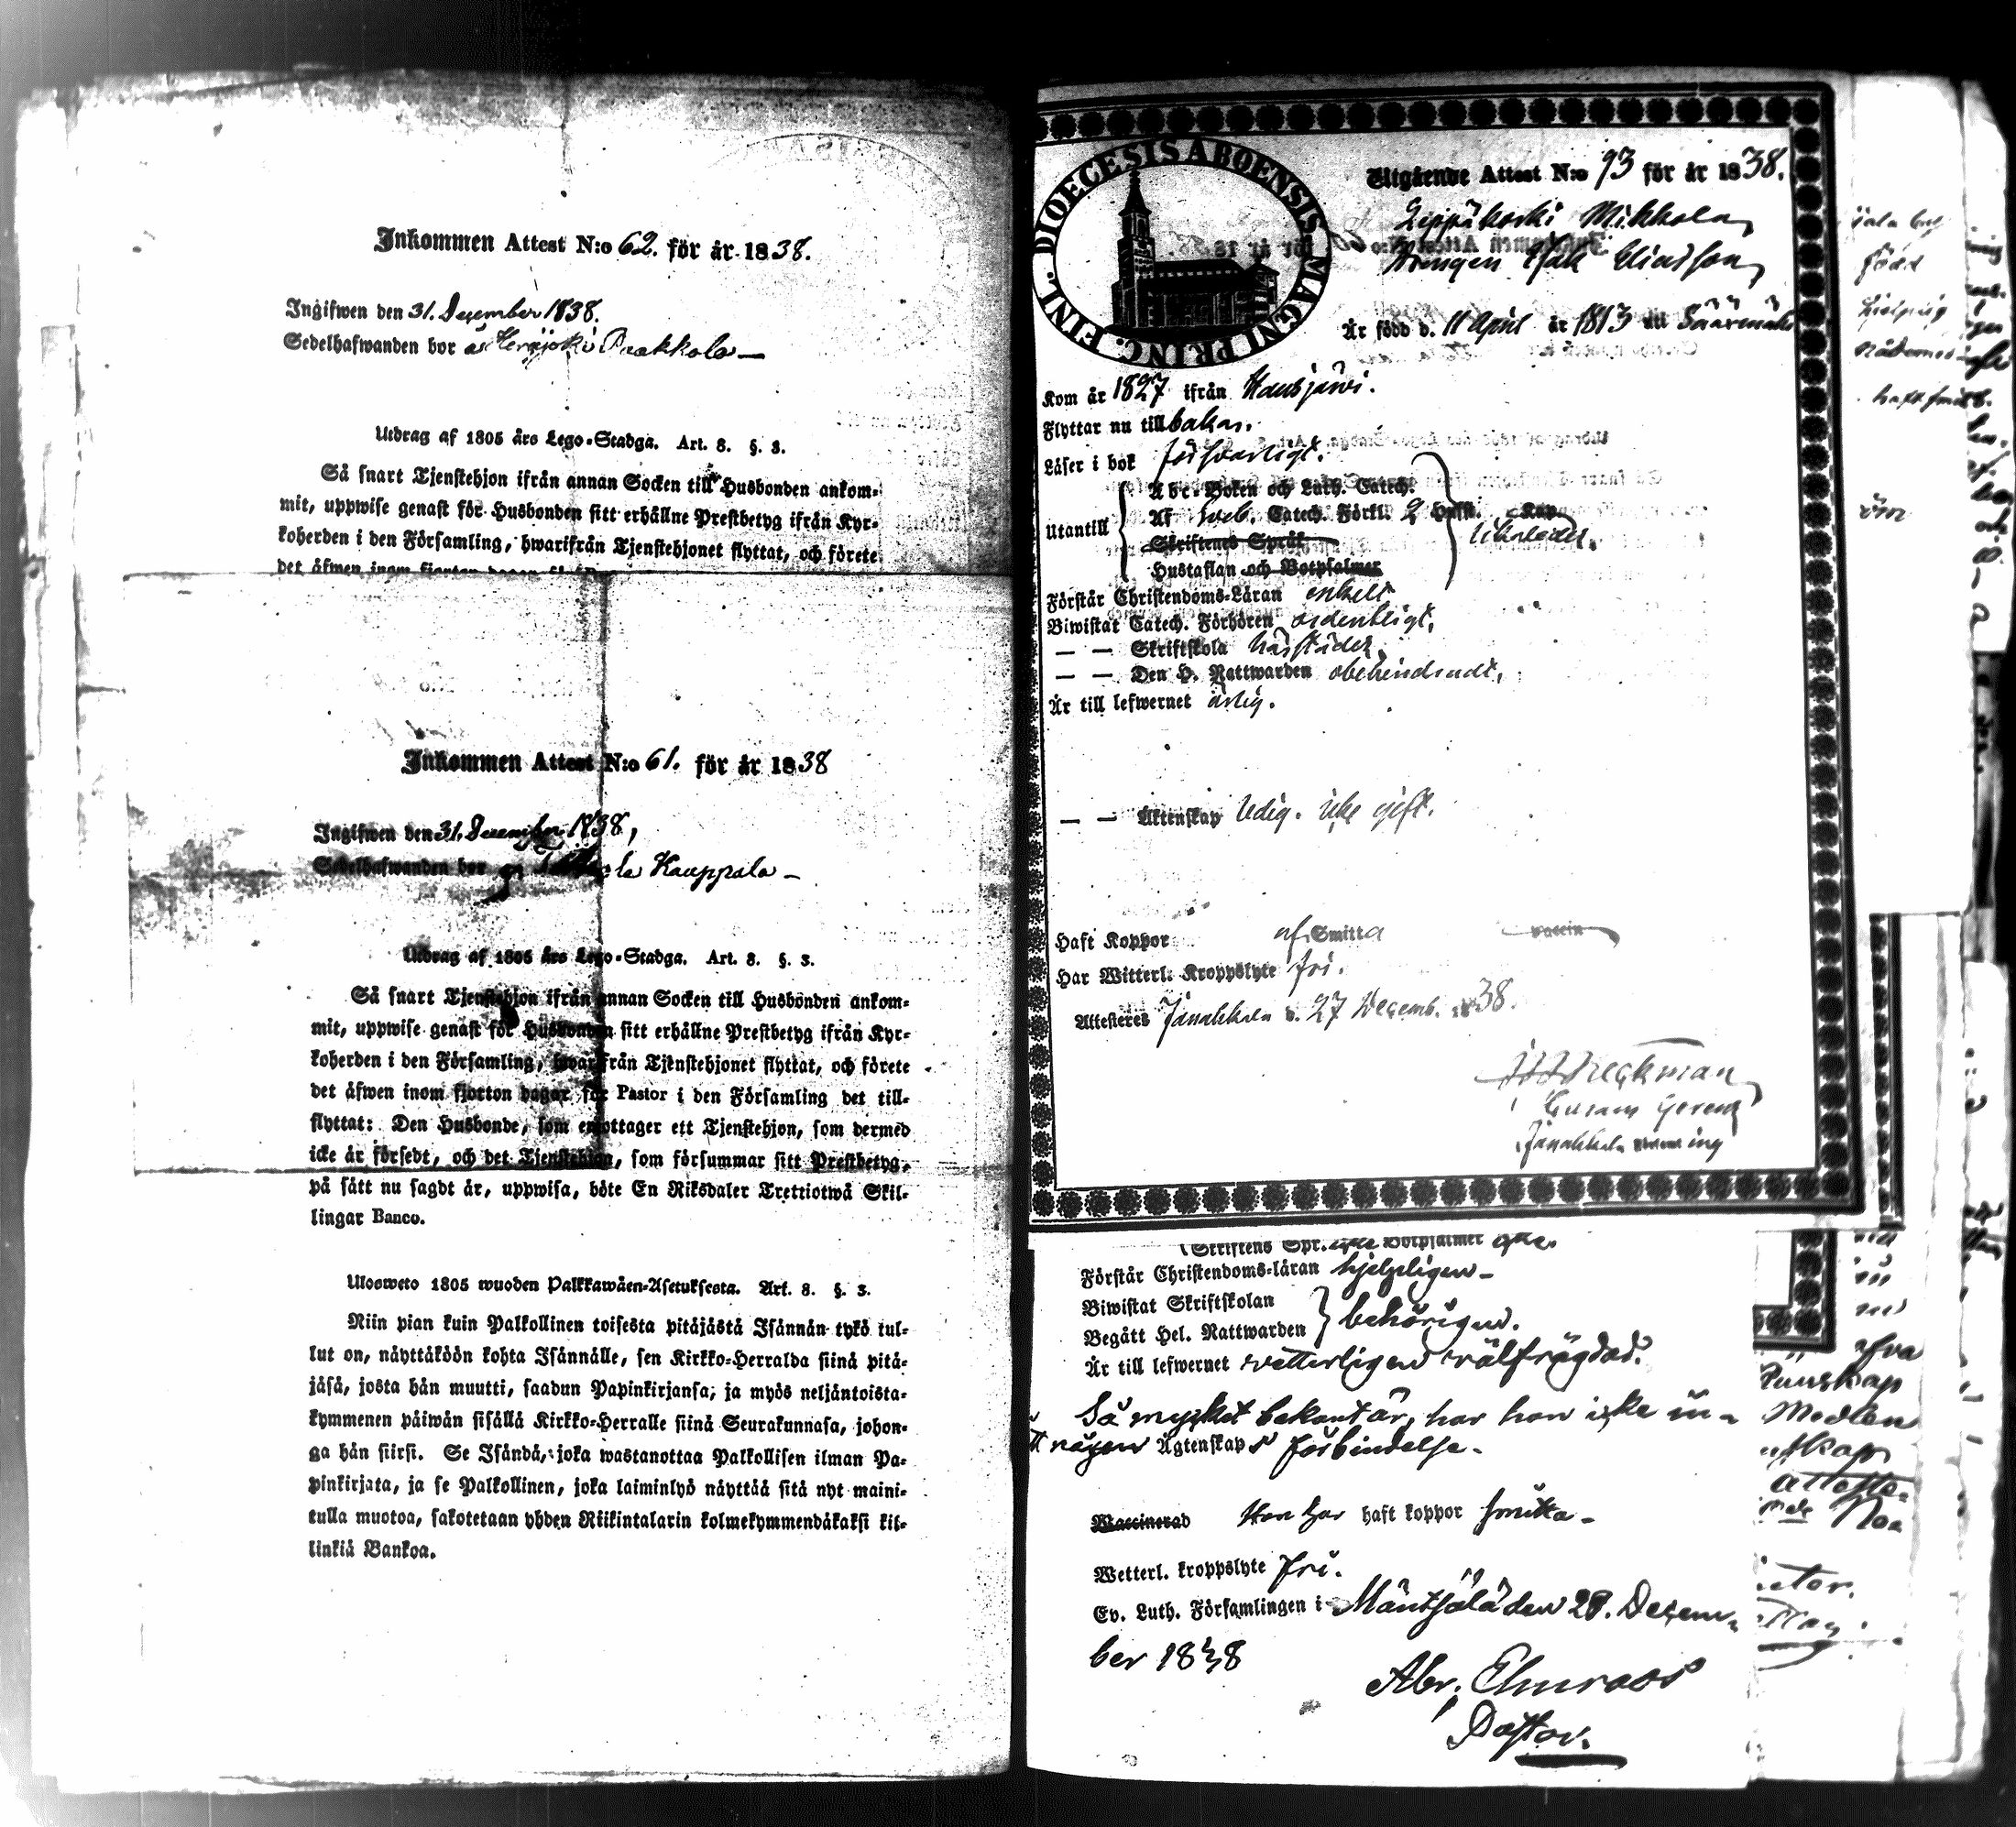 Inkommen Attest N:o 62. för år 1838.
Ingifwen den 31. December 1838.
Sedelhafwanden bor å Herajoki Paakkola —
Utdrag af 1805 års Lego-Stadga. Art. 8. §. 3.
Så snart Tjenstehjon ifrån annan Socken till Husbonden ankom-
mit, uppwise genast för Husbonden sitt erhållne Prestbetyg ifrån Kyr-
koherden i den Församling, hwarifrån Tjenstehjonet flyttat, och förete
det äfwen inom fjorton dagar
Inkommen Attest N:o 61. för år 1838
Ingifwen den 31. December 1838,
Sedelhafwanden bor Kauppala —
Utdrag af 1805 års Lego-Stadga. Art. 8. §. 3.
Så snart Tjenstehjon ifrån annan Socken till Husbonden ankom-
mit, uppwise genast för Husbonden sitt erhållne Prestbetyg ifrån Kyr-
koherden i den Församling, hwarifrån Tjenstehjonet flyttat, och förete
det äfwen inom fjorton dagar för Pastor i den Församling det till-
flyttat: Den Husbonde, som emottager ett Tjenstehjon, som dermed
icke är försedt, och det Tjenstehjon, som försummar sitt Prestbetyg,
på sätt nu sagdt är, uppwisa, böte En Riksdaler Trettiotwå Skil-
lingar Banco.
Ulosweto 1805 wuoden Palkkawäen-Asetuksesta. Art. 8. §. 3.
Niin pian kuin Palkollinen toisesta pitäjästä Isännän tykö tul-
lut on, näyttäköön kohta Isännälle, sen Kirkko-Herralda siinä pitä-
jäsä, josta hän muutti, saadun Papinkirjansa; ja myös neljäntoista-
kymmenen päiwän sisällä Kirkko-Herralle siinä Seurakunnasa, johon-
ga hän siirsi. Se Isändä, joka wastanottaa Palkollisen ilman Pa-
pinkirjata, ja se Palkollinen, joka laiminlyö näyttää sitä nyt maini-
tulla muotoa, sakotetaan yhden Riikintalarin kolmekymmendäkaksi kil-
linkiä Bankoa.
FINL. DIOECESIS ABOENSIS MAGNI PRINC.
Utgående Attest N:o 93 för år 1838.
Leppäkoski Mikkola
Drengen Isak Eliasson
Är född d. 11 April år 1813 uti Säärmäki
Kom år 1827 ifrån Hausjärvi.
Flyttar nu tillbakar.
Läser i bok försvarligt.
Utantill
Abc-Boken och Luth. Catech.
Af Sveb. Catech. Förkl. 2 Hufst. Kap.
Skriftenes Språk
Hustaflan och Botpsalmer
Förstår Christendoms-Läran enkelt
Biwistat Catech. Förhören ordentligt,
— — Skriftskola härstädes,
— — Den H. Nattwarden obehindradt,
Är till lefwernet ärlig.
— — Äktenskap ledig. icke gift.
Haft Koppor af Smitta vaccin
Har Witterl. Kroppslyte fri.
Attesteras Janakkala d. 27 Decemb. 1838.
Heckman
Janakkala
Skriftens Spr. Botpsalmer
Förstår Christendoms-läran hjelpligen —
Biwistat Skriftskolan
Begått Hel. Nattwarden behörigen.
Är till lefwernet vetterligen välfrägdad.
Så mycket bekant är, har hon icke in-
gått någon Ägtenskaps förbindelse —
Waccinerad Hon har haft koppor smitta —
Wetterl. kroppslyte fri.
Ev. Luth. Församlingen i Mäntsälä den 28. Decem-
ber 1838
Abr. Elmroos
Pastor.